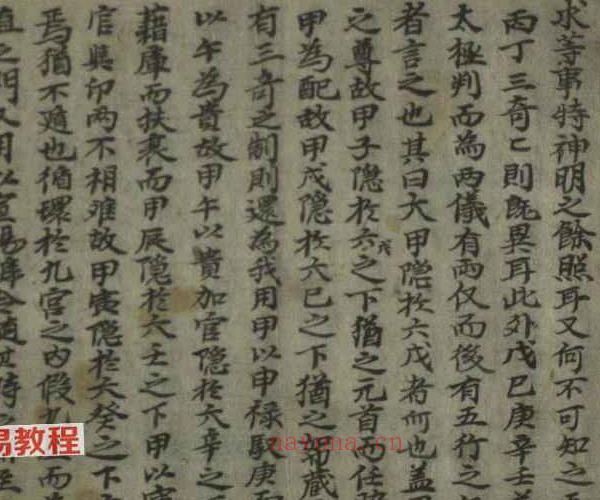 求等事特神明之餘照耳又何不可知之
丙丁三奇乙則既異耳此外戊己庚辛壬
太極判而為兩儀有兩仪而後有五行之
者言之也其曰大甲隐於六戊者何也盖
之尊故甲子隐於六戊之下猶之元首
甲為配故甲戌隐於六己之下猶之 藏
有三奇之制則還為我用甲以申禄馭庚而
以午為貴故甲午以貴加官隐於六辛之
藉庫而扶衰而甲辰隐於六壬之下甲以寅
官與印两不相难故甲寅隐於六癸之下
焉猶不随也循環於九宮之内假九 而為
易教程
nayona.cn